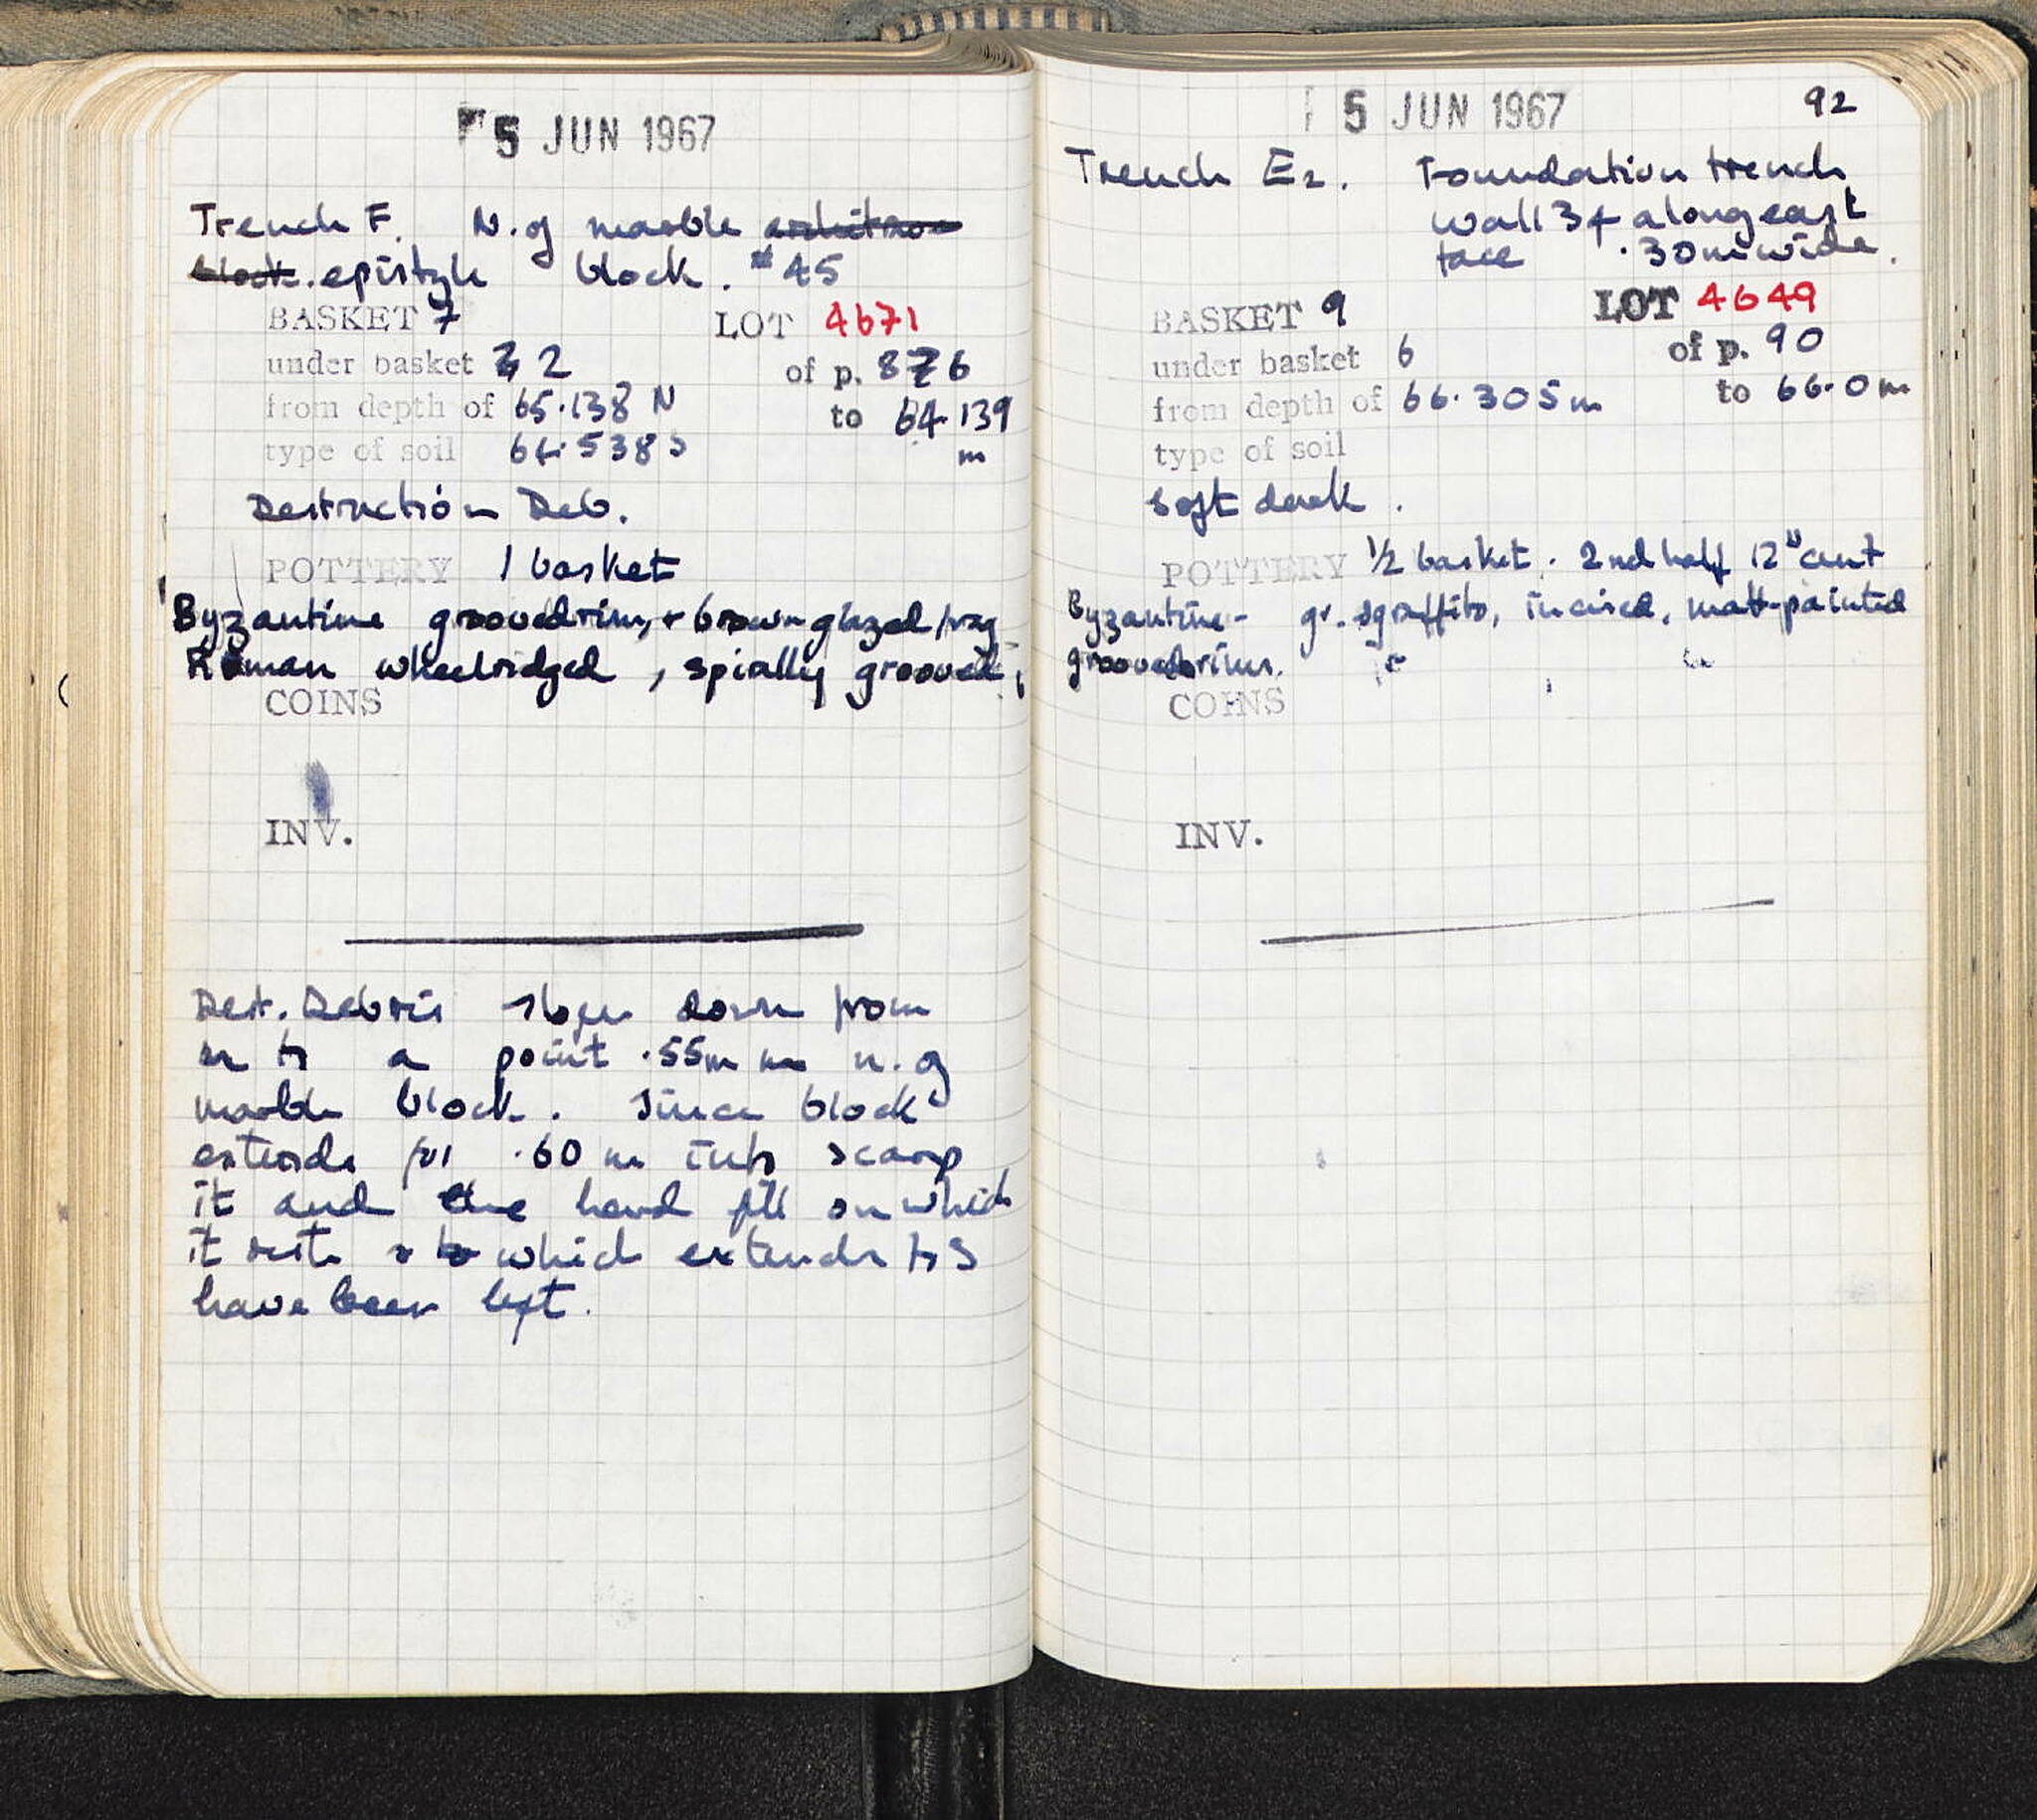 5 JUN 1967
Trench F. N. of marble architrave
block. epistyle block. #45
BASKET 7 LOT 4671
under basket 2 of p. 86
from depth of 65.138 N to 64.139
type of soil 64.538 S m
Destruction Deb.
POTTERY 1 basket
Byzantine groovedrim, + brown glazed frag
Roman wheelridged, spially grooved,
COINS
INV.
Dest. Debris slopes down from
to a point .55m n. of
marble block. Since block
extends for .60 m into scarp
it and the hard fill on which
it rests & to which extends to S
have been left.
5 JUN 1967 92
Trench E2. Foundation trench
wall 34 along east
face .30m wide.
BASKET 9 LOT 4649
under basket 6 of p. 90
from depth of 66.305m to 66.0m
type of soil
soft dark.
POTTERY 1/2 basket. 2nd half 12" cent
Byzantine - gr. sgraffito, incised, matt-painted
groovedrims.
COINS
INV.